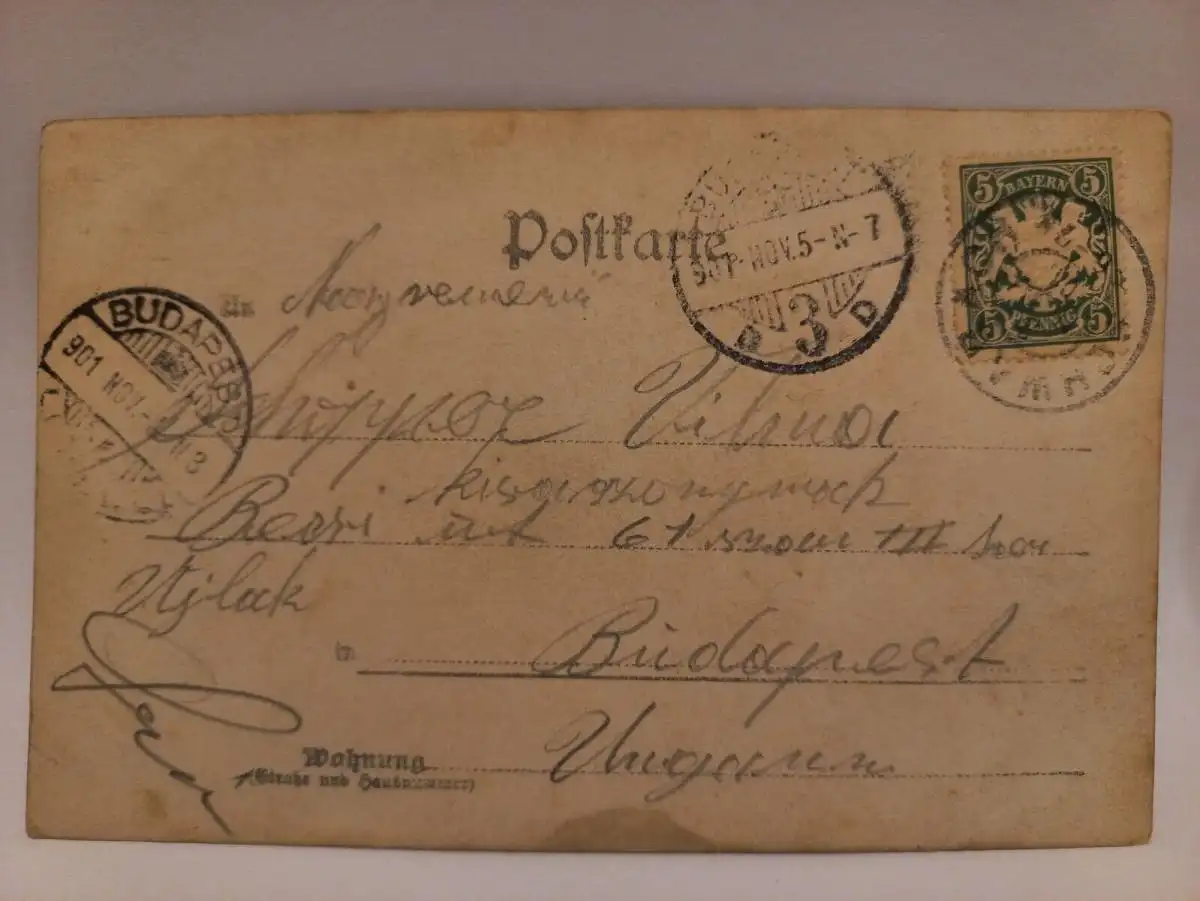 Postkarte
An
Vilma
kisasszonynak
Becsi út 61 szám III ker
Ujlak
in Budapest
Ungarn
Wohnung
(Straße und Hausnummer)
BUDAPEST
901 NOV.
901 NOV. 5-N-7
3
D D
5 BAYERN 5
5 PFENNIG 5